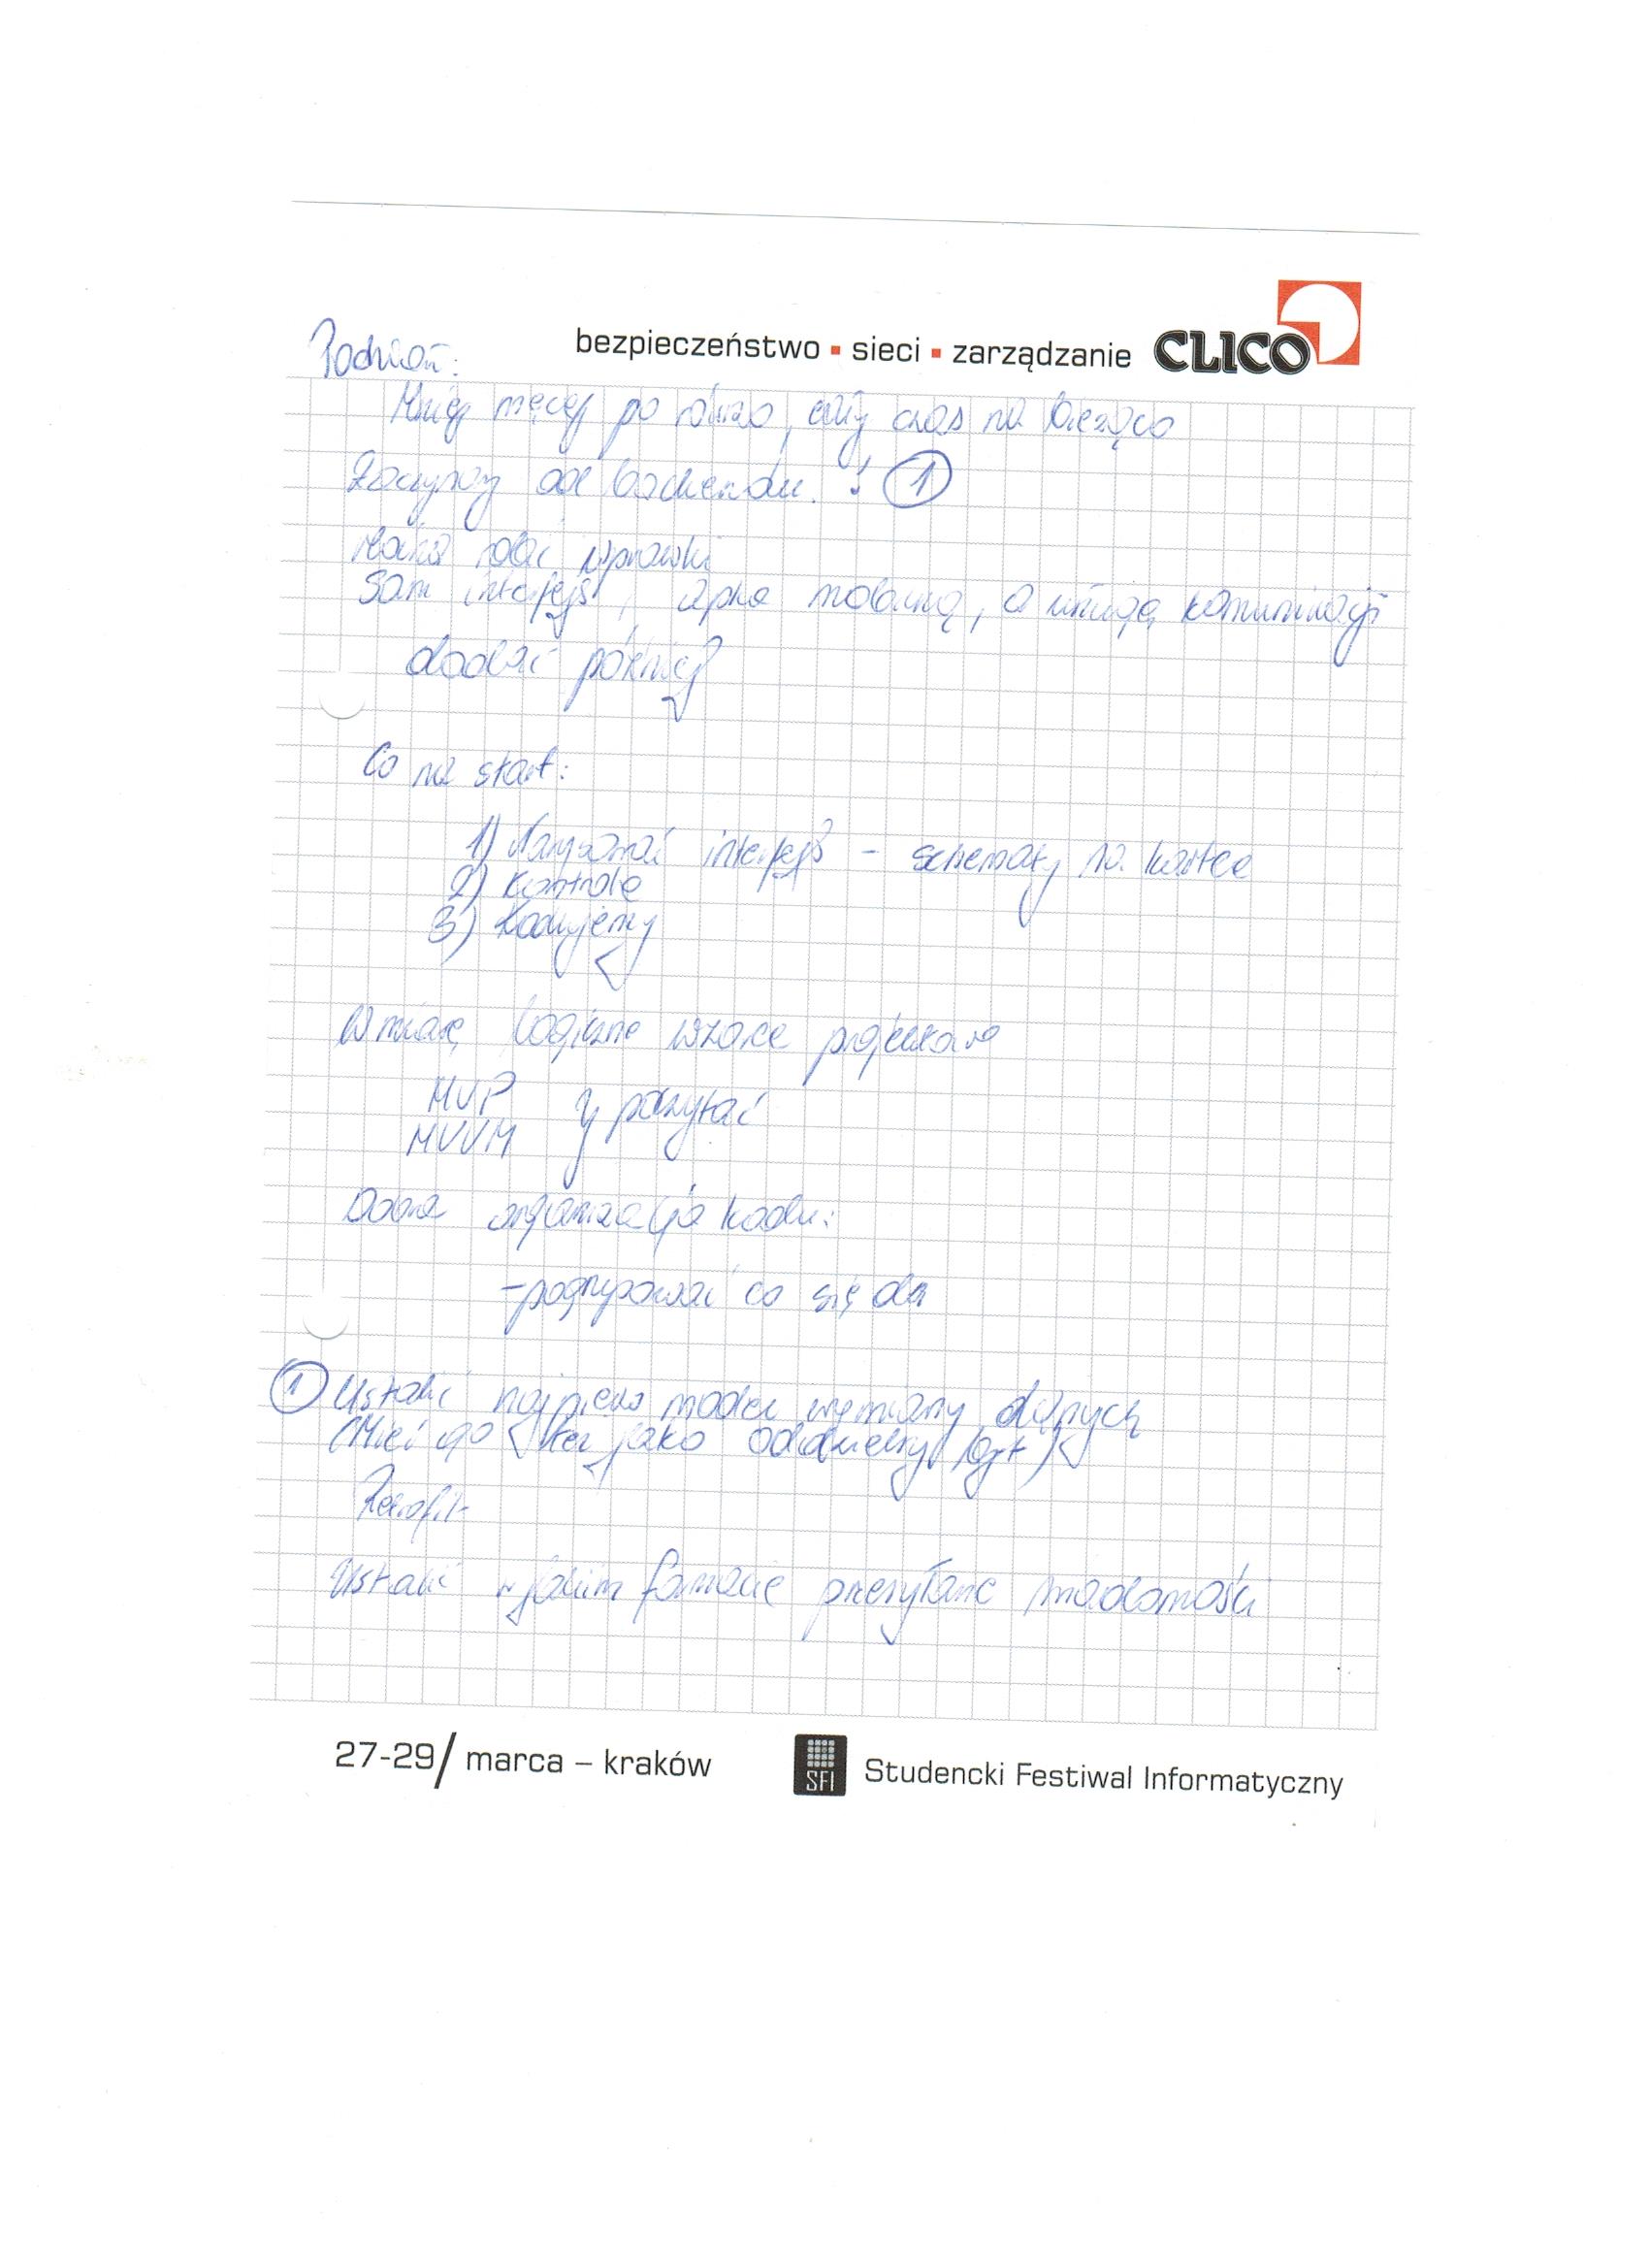 bezpieczeństwo ▪ sieci ▪ zarządzanie CLICO
Podział:
Mniej więcej po równo, cały czas na bieżąco
Zaczynamy od backendu! 1
robić wprawki
Sam interfejs, apka mobilną, a komunikacji
dodać później
Co na start:
1) Narysować interfejs - schematy na kartce
2) Kontrola
3) Kodujemy
W miarę logiczne wzorce projektowe
MVP } poczytać
MVVM
Dobra organizacja kodu:
- pogrupować co się da
1 Ustalić najpierw model wymiany danych
(Mieć go też jako oddzielny byt)
Retrofit
Ustalić w jakim formacie przesyłane wiadomości
27-29/ marca – kraków SFI Studencki Festiwal Informatyczny